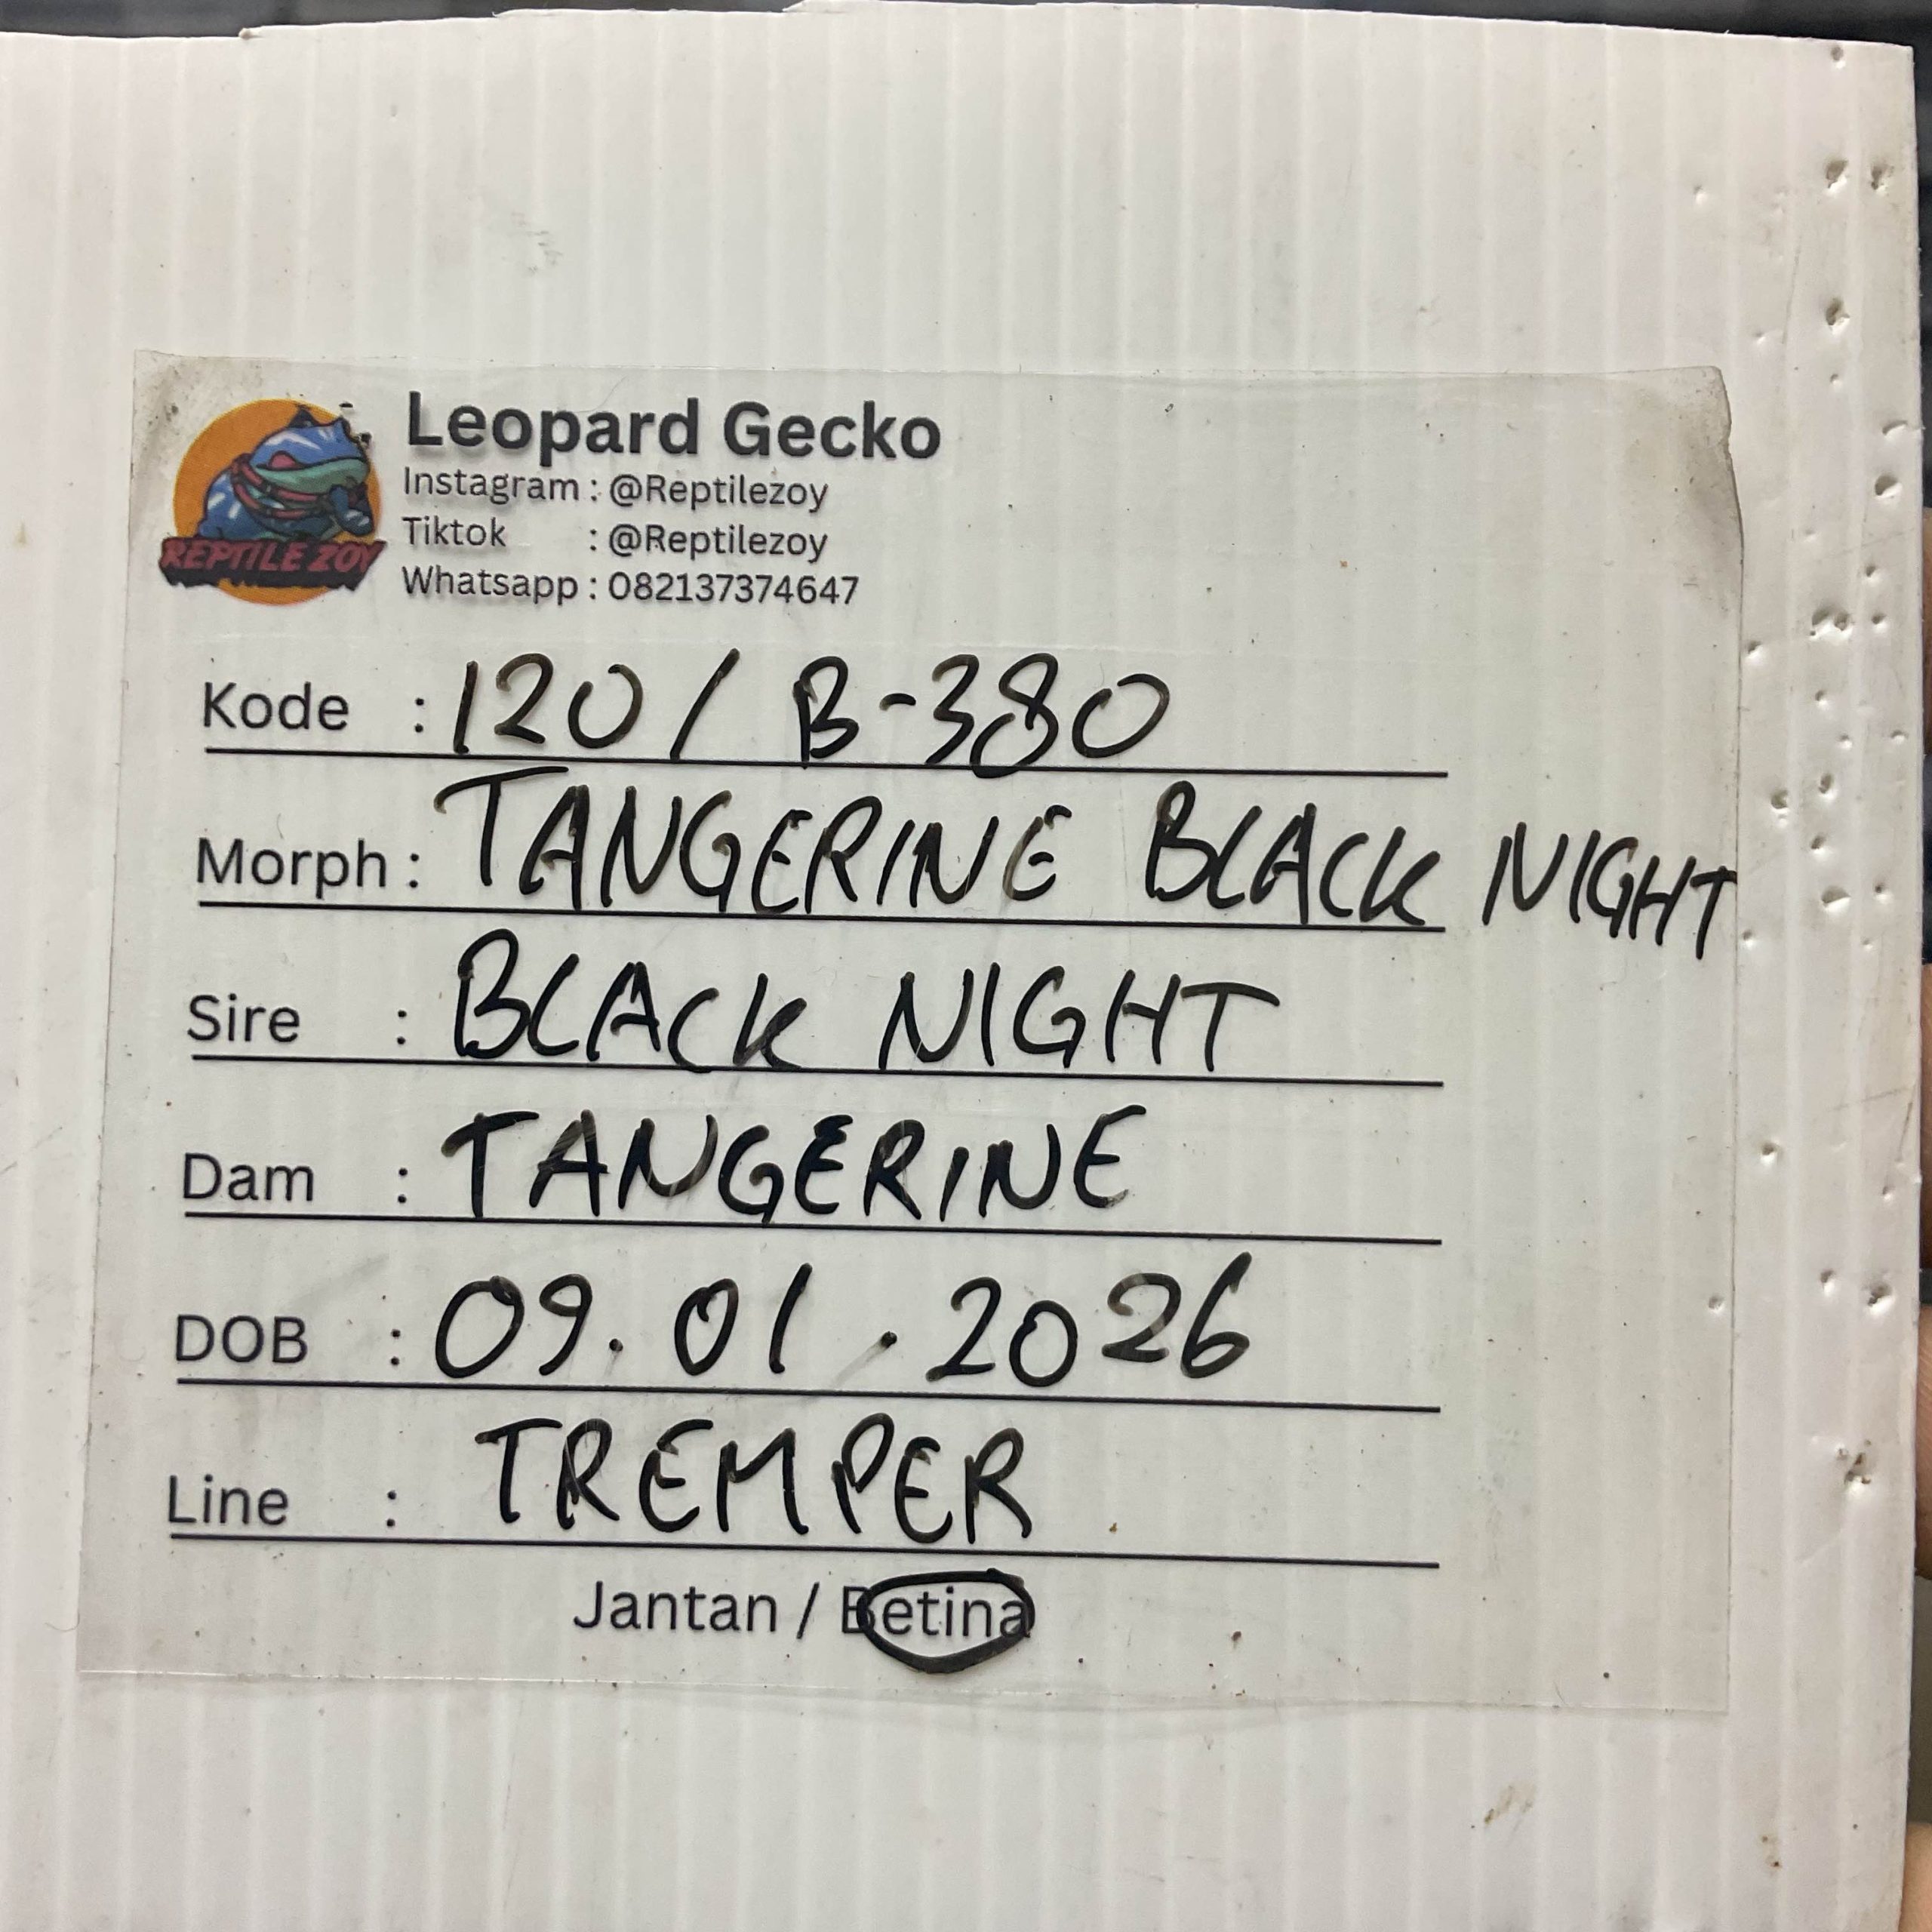 REPTILE ZOY
Leopard Gecko
Instagram : @Reptilezoy
Tiktok : @Reptilezoy
Whatsapp : 082137374647
Kode : 120 / B-380
Morph : TANGERINE BLACK NIGHT
Sire : BLACK NIGHT
Dam : TANGERINE
DOB : 09.01.2026
Line : TREMPER
Jantan / Betina